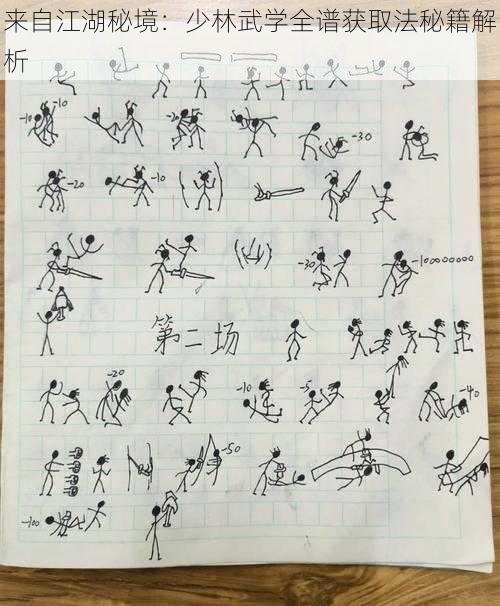 来自江湖秘境：少林武学全谱获取法秘籍解
析
-10 -10 -20 -30
-20 -10
-30 -100000000
第二场
-20 -10 -5 -40
-50
-100